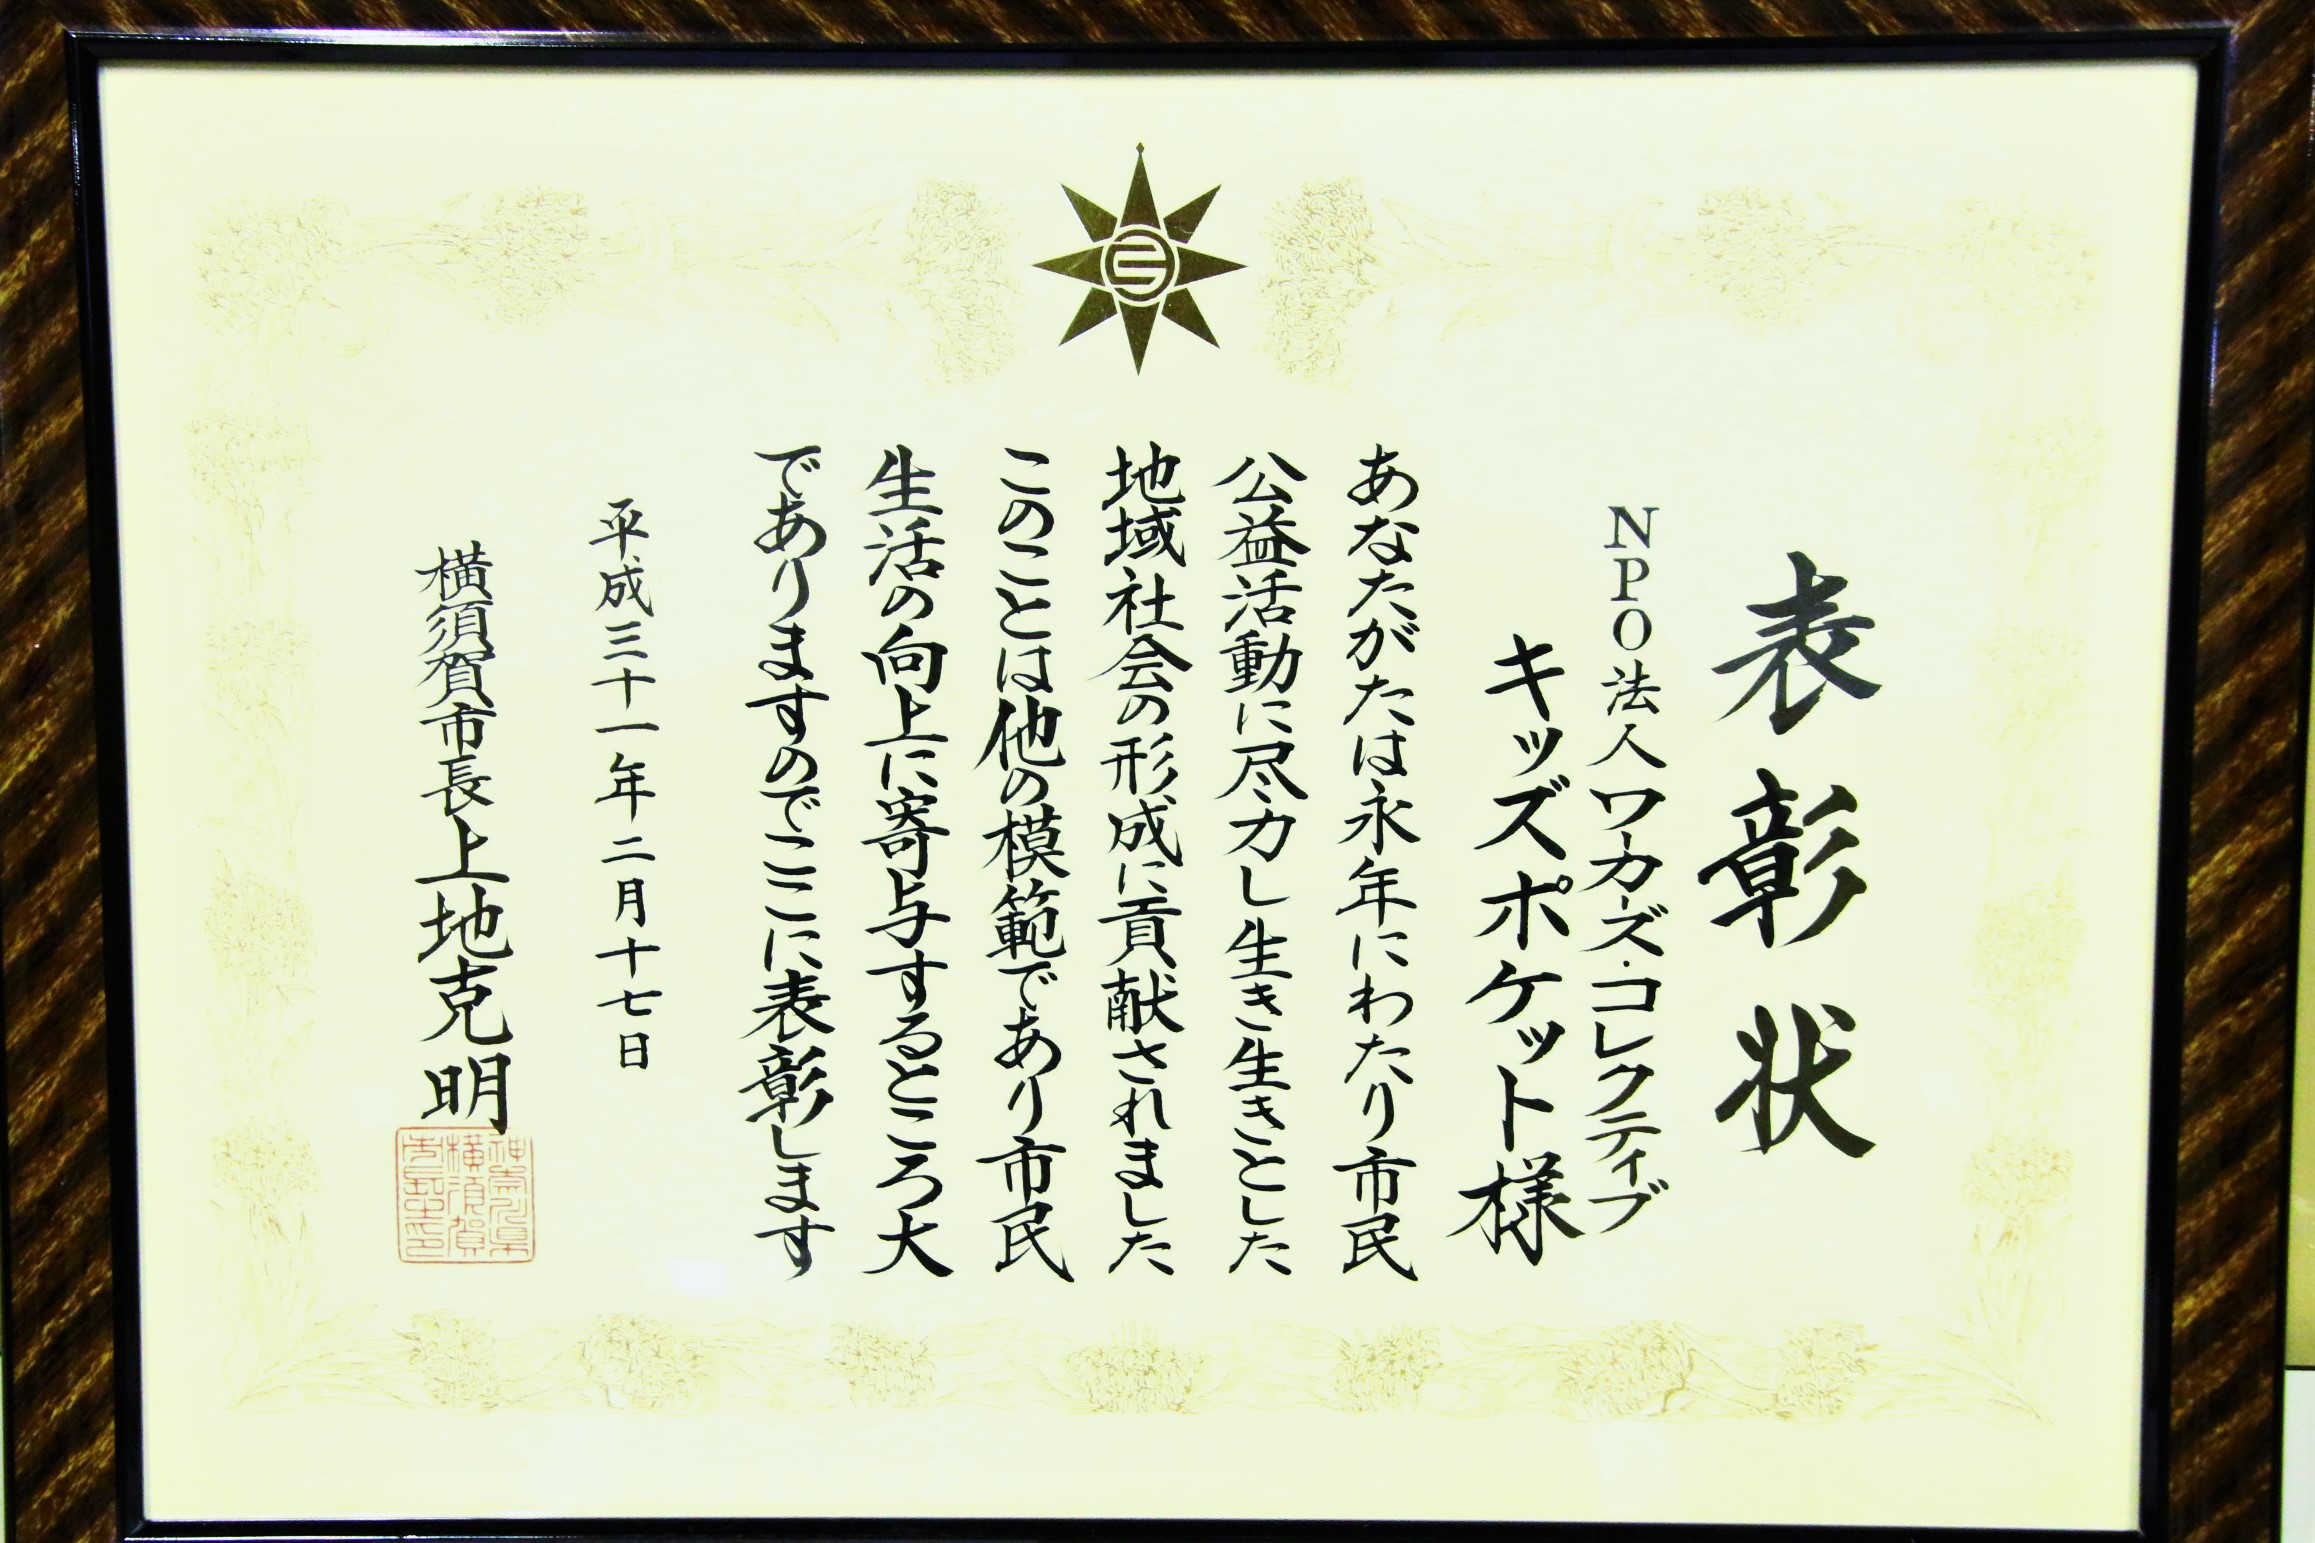 表彰状
NPO法人ワーカーズ・コレクティブ
キッズポケット様
あなたがたは永年にわたり市民
公益活動に尽力し生き生きとした
地域社会の形成に貢献されました
このことは他の模範であり市民
生活の向上に寄与するところ大
でありますのでここに表彰します
平成三十一年二月十七日
横須賀市長上地克明
神奈川県
横須賀
市長之印